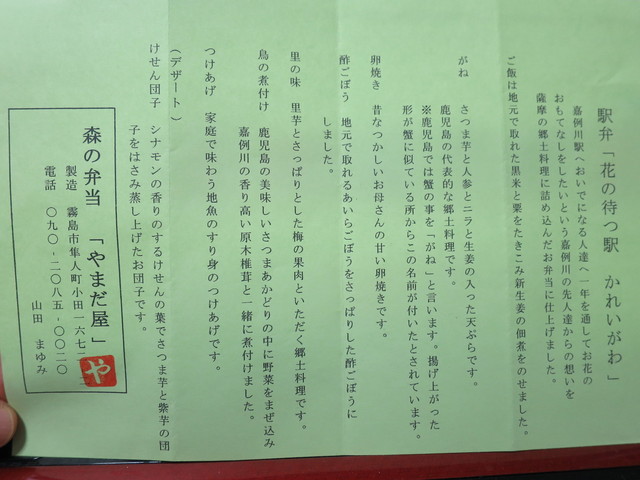 駅弁「花の待つ駅　かれいがわ」
嘉例川駅へおいでになる人達へ一年を通してお花の
おもてなしをしたいという嘉例川の先人達からの想いを
薩摩の郷土料理に詰め込んだお弁当に仕上げました。
ご飯は地元で取れた黒米と栗をたきこみ新生姜の佃煮をのせました。
がね　さつま芋と人参とニラと生姜の入った天ぷらです。
鹿児島の代表的な郷土料理です。
※鹿児島では蟹の事を「がね」と言います。揚げ上がった
形が蟹に似ている所からこの名前が付いたとされています。
卵焼き　昔なつかしいお母さんの甘い卵焼きです。
酢ごぼう　地元で取れるあいらごぼうをさっぱりした酢ごぼうに
しました。
里の味　里芋とさっぱりとした梅の果肉といただく郷土料理です。
鳥の煮付け　鹿児島の美味しいさつまあかどりの中に野菜をまぜ込み
嘉例川の香り高い原木椎茸と一緒に煮付けました。
つけあげ　家庭で味わう地魚のすり身のつけあげです。
(デザート)
けせん団子　シナモンの香りのするけせんの葉でさつま芋と紫芋の団
子をはさみ蒸し上げたお団子です。
森の弁当　「やまだ屋」
や
製造　霧島市隼人町小田一六七二
電話　〇九〇-二〇八五-〇〇二〇
山田　まゆみ